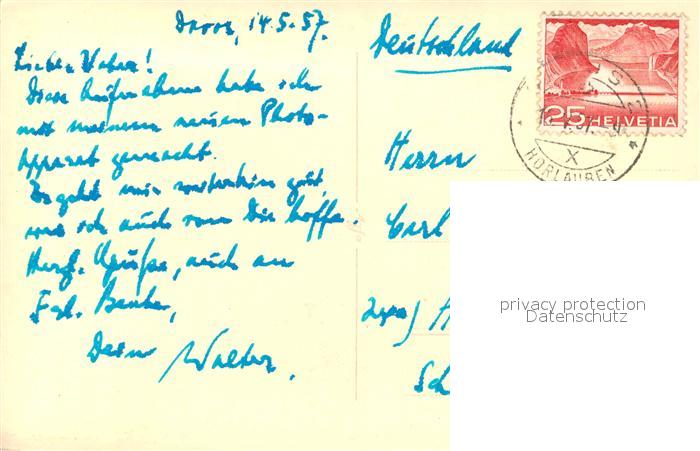 Davos, 14.5.57.
Lieber Vater!
Diese Aufnahme habe ich
mit meinem neuen Photo-
Apparat gemacht.
Es geht mir weiterhin gut,
wie ich auch von Dir hoffe.
Herzl. Grüße, auch an
Frl.
Dein Walter.
Deutschland
Herrn
Carl
H
Sch
25 HELVETIA
HORLAUBEN
X
privacy protection
Datenschutz